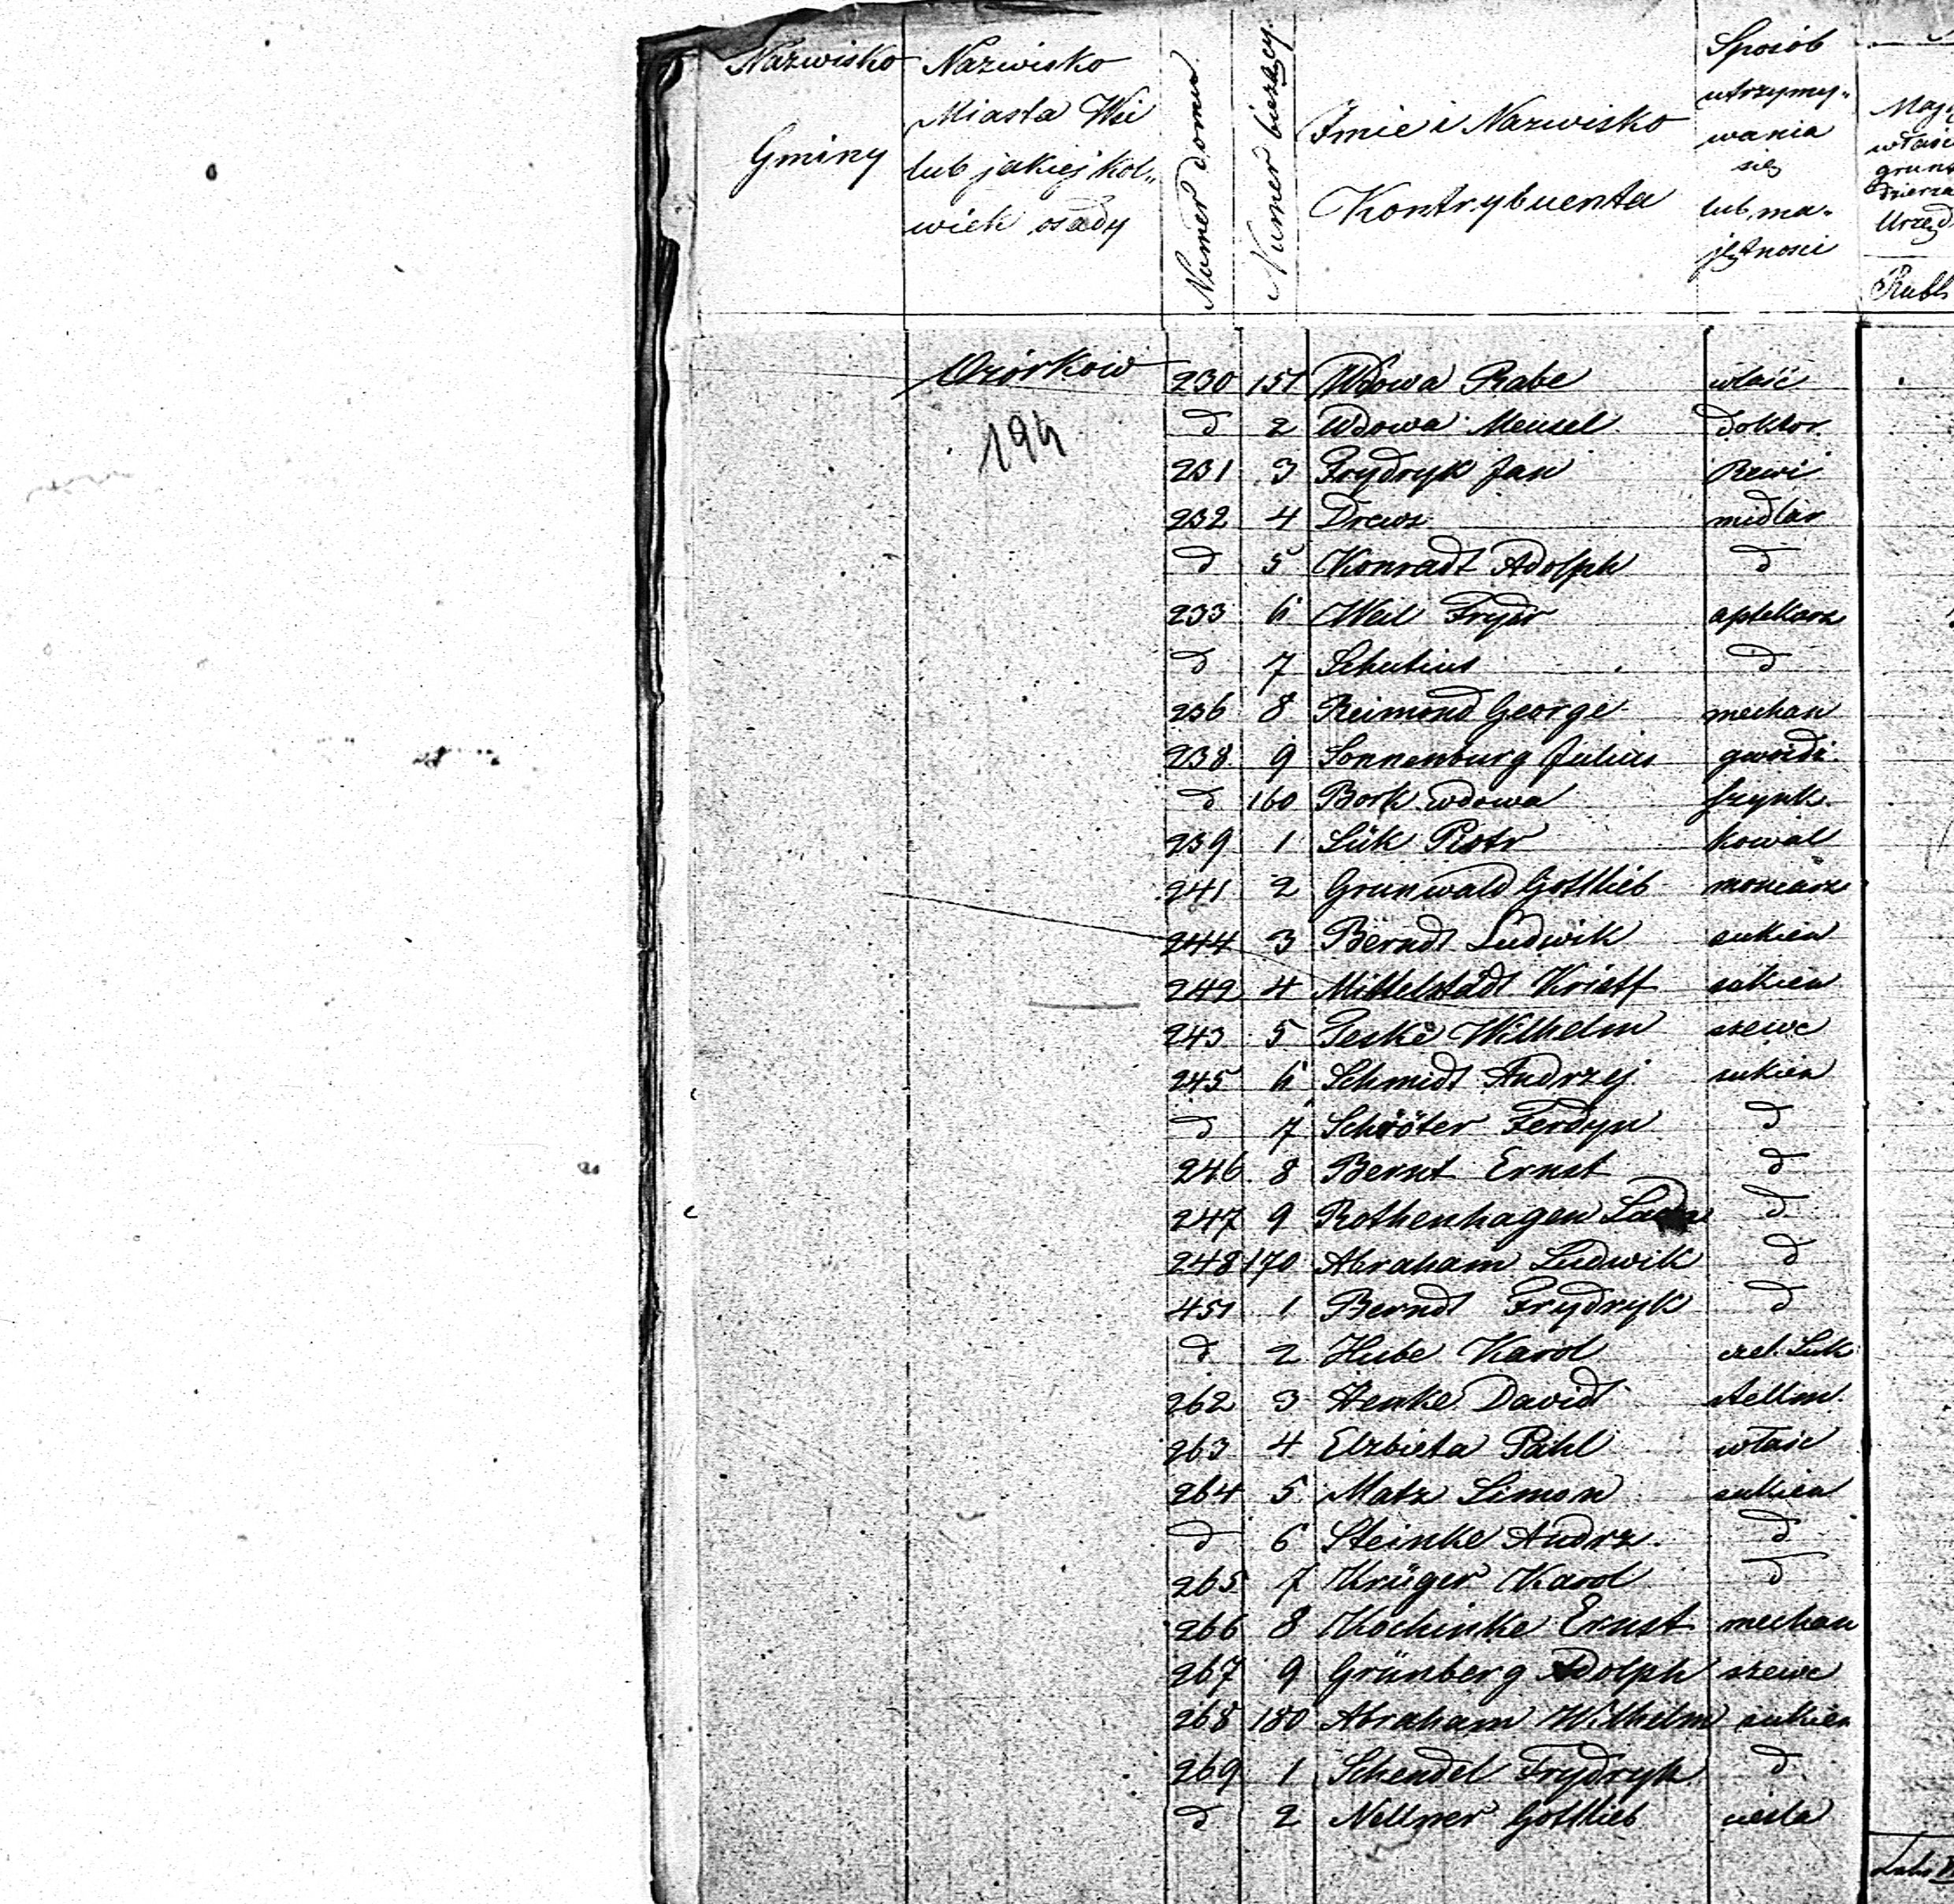 Nazwisko Gminy
Nazwisko Miasta Wsi lub jakiej kol„ wiek osady
Numer domu
Numer bieżący
Imie i Nazwisko Kontrybuenta
Sposób utrzymy„ wania się lub ma„ jętności
Rubl
Ozórkow
194
230 157 Wdowa Rabe właść
d 2 Wdowa Mensel doktor
231 3 Frydryk Jan
232 4 Drews midlar
d 5 Konradt Adolph d
233 6 Weil Frydr aptekarz
d 7 d
236 8 Reimond George mechan
238 9 Sonnenburg Julius gwoźdź
d 160 Bork wdowa szynk
239 1 Sük Piotr kowal
241 2 Grunwald Gottlieb mosiarz
244 3 Berndt Ludwik sukien
242 4 Mittelstädt Kristf sukien
243 5 Jeske Wilhelm szewc
245 6 Schmidt Andrzej sukien
d 7 Schröter Ferdyn d
246 8 Bernt Ernst d
247 9 Rothenhagen d
248 170 Abraham Ludwik d
451 1 Berndt Frydryk d
d 2 Hube Karol czel. Suk
262 3 Henke David stellm.
263 4 Elzbieta Pahl właśc
264 5 Matz Simon sukien
d 6 Steinke Andrz. d
265 7 Krüger Karol d
266 8 Kochinke Ernst mechan
267 9 Grünberg Adolph szewc
268 180 Abraham Wilhelm sukien
269 1 Schendel Frydryk d
d 2 Nellner Gottlieb ciesla